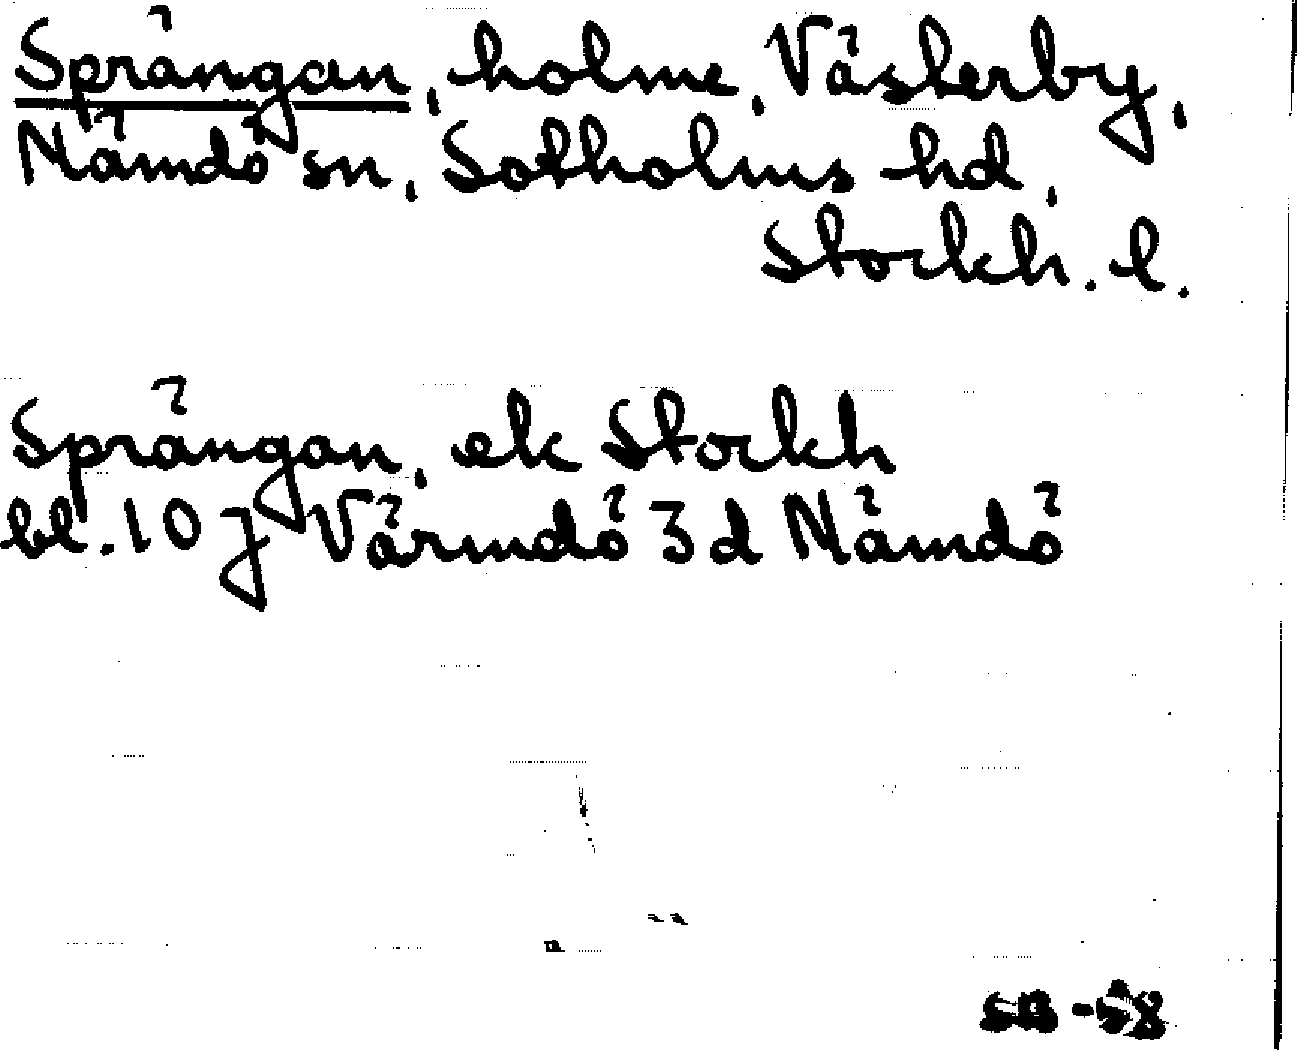 Sprängan, holme, Västerby,
Nämdö sn, Sotholms hd,
Stockh. l.
Sprängan, ek Stockh
bl. 10 j Värmdö 3 d Nämdö
SB-58